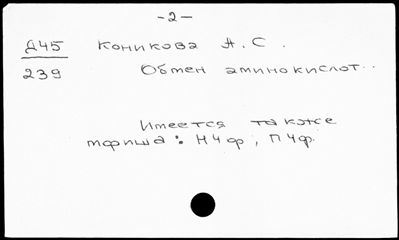 -2-
Д45 Коникова А. С.
239 Обмен аминокислот..
Имеется также
шифр: Н4ф; П4ф.